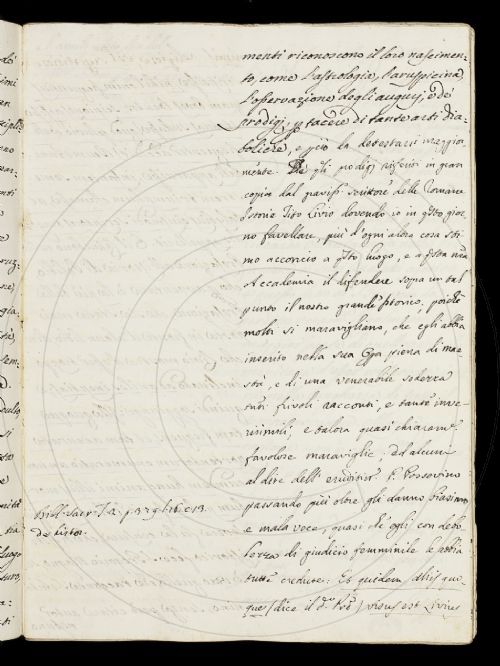 menti riconoscono il loro nascimen-
to, come l'astrologia, l'aruspicina
l'osservazione degli augurj, e de
prodigj, p tacere di tante arti dia-
boliche, e più da detestarsi maggior-
mente. De gli prodigj riferiti in gran
copia dal graviss. scrittore delle Romane
Istorie Tito Livio dovendo io in qsto gior-
no favellare, più d'ogni altra cosa sti-
mo acconcio a qsto luogo, e a qsta nra
Accademia il difendere sopra un tal
punto il nostro grand'Istorico, poichè
molti si maravigliano, che egli abbia
inserito nella sua piena di mae-
stà, e di una venerabile
tanti frivoli racconti, e tante inve-
risimili, e talora quasi chiaram.e
favolose maraviglie; ed alcuni
al dire dell' erudito P. Possevino
passando più oltre gli danno biasimo
e mala voce, quasi chè egli con debo-
lezza di giudicio femminile le abbia
tutte credute: Et quidem aliis quo-
que (dice il d.o Pos.) visus est Livius
Bibl. Sacr. T. 2. p. 379 lib. c 13.
De histor.